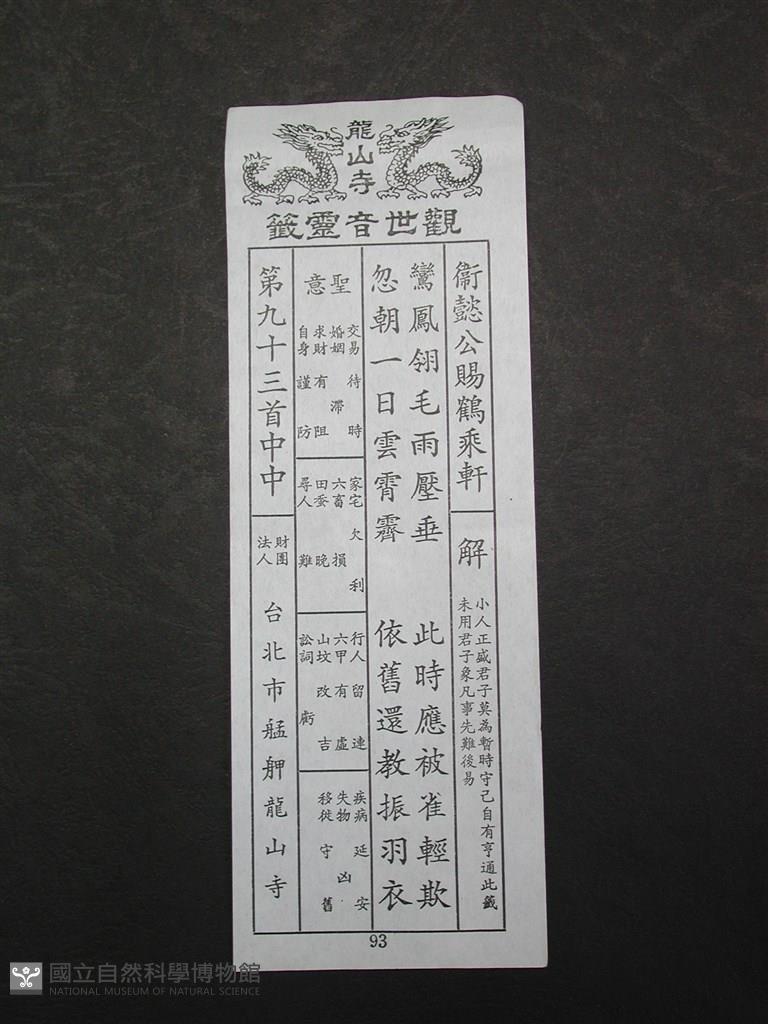 龍山寺
觀世音靈籤
衞懿公賜鶴乘軒
解
小人正盛君子莫為暫時守己自有亨通此籤
未用君子象凡事先難後易
鸞鳳翎毛雨壓垂 此時應被雀輕欺
忽朝一日雲霄霽 依舊還教振羽衣
聖意
交易 待時
婚姻 滯
求財 有阻
自身 謹防
家宅 欠利
六畜 損
田蚕 晚
尋人 難
行人 留連
六甲 有虛
山坟 改吉
訟詞 虧
疾病 延安
失物 凶
移徙 守舊
第九十三首中中
財團
法人
台北市艋舺龍山寺
93
國立自然科學博物館
NATIONAL MUSEUM OF NATURAL SCIENCE